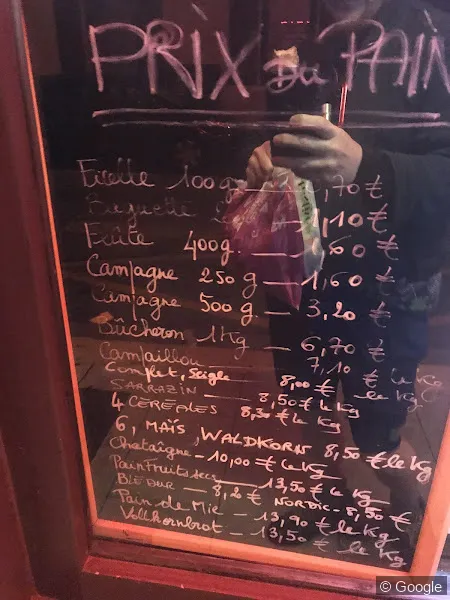 PRIX DU PAIN
Ficelle 100g — ,70 €
Baguette 1,10 €
Flûte 400g. 1,60 €
Campagne 250 g — 1,60 €
Campagne 500 g. — 3,20 €
Bûcheron 1Kg — 6,70 €
Campaillou 7,10 € le Kg
Complet, Seigle 8,00 € le Kg
SARRAZIN — 8,50 € le Kg
4 CEREALES 8,30 € le Kg
6, MAÏS, WALDKORN 8,50 € le Kg
Chataîgne — 10,00 € le Kg
Pain fruits secs — 13,50 € le Kg
BLEDUR — 8,20 € NORDIC - 8,50 €
Pain de Mie — 13,90 € le Kg
Vollkornbrot — 13,50 € le Kg
© Google